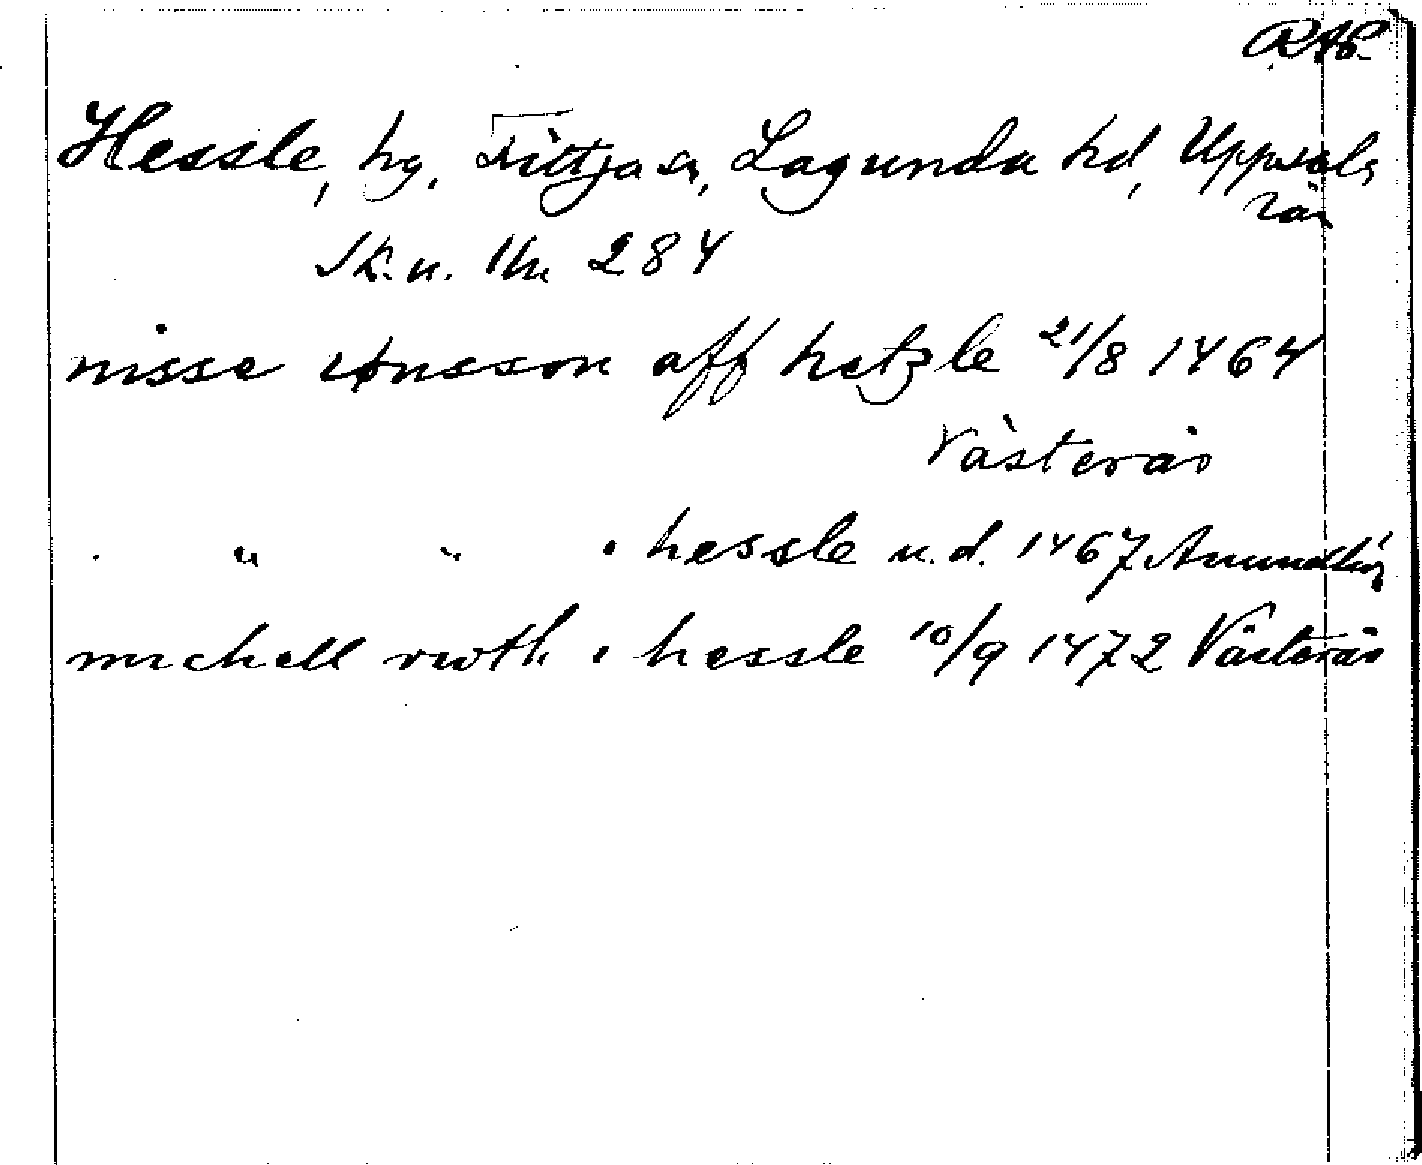 RAP.
Hessle, hg, Fittja sn, Lagunda hd, Uppsala
län
Sk. u. 1m 284
nisse iønsson aff hetzle 21/8 1464
Västerås
" " " " hessle u.d. 1467 Anundhög
michell rwth " hessle 10/9 1472 Västerås